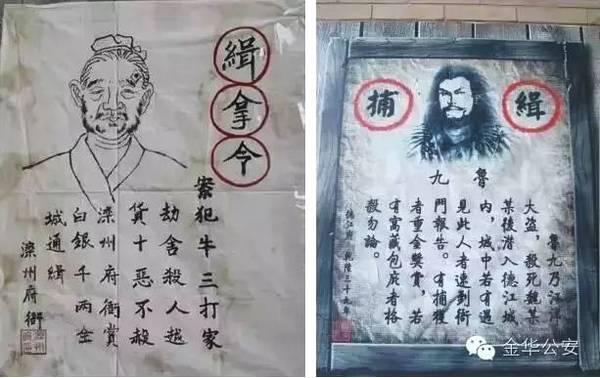 緝拿令
案犯牛三打家
劫舍殺人越
貨十惡不赦
滦州府衙賞
白銀千兩全
城通緝
滦州府衙
緝捕
魯九
魯九乃江洋
大盜，殺死魏某
某後潛入德江城
內，城中若有遇
見此人者速到衙
門報告。有捕獲
者重金獎賞，若
有窩藏包庇者格
殺勿論。
德江 乾隆三十九年
金华公安